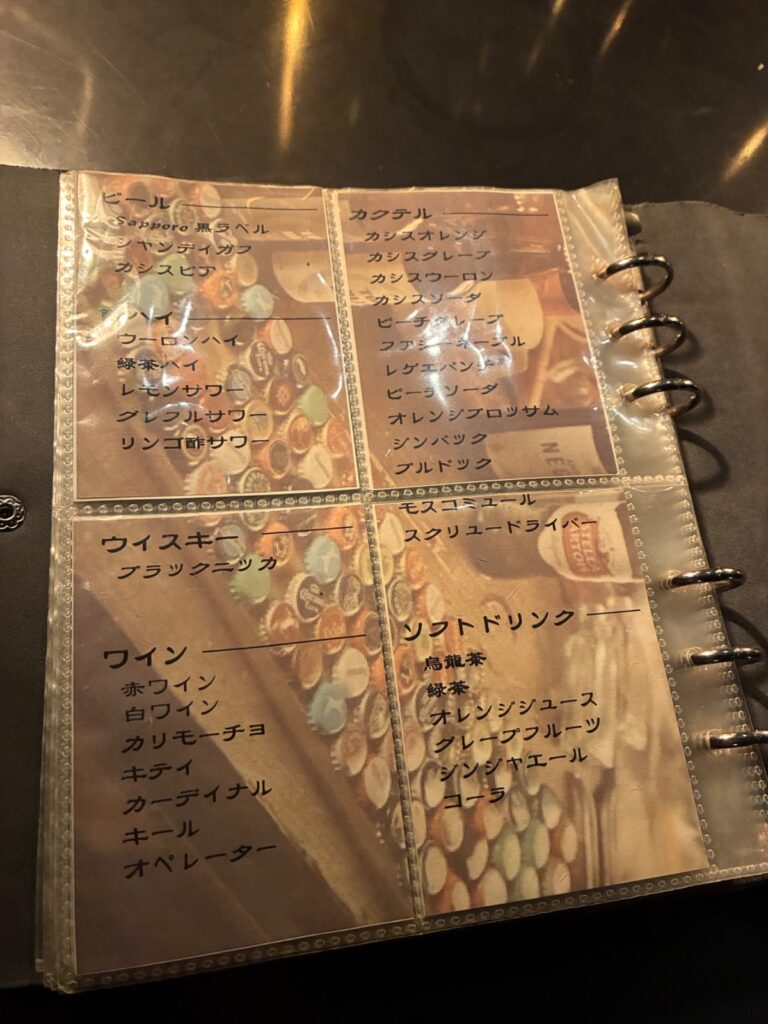 ビール
Sapporo 黒ラベル
シャンディガフ
カシスビア
ハイ
ウーロンハイ
緑茶ハイ
レモンサワー
グレフルサワー
リンゴ酢サワー
カクテル
カシスオレンジ
カシスグレープ
カシスウーロン
カシスソーダ
ピーチグレープ
ファジーネーブル
レゲエパンチ
ピーチソーダ
オレンジブロッサム
ジンバック
ブルドック
モスコミュール
スクリュードライバー
ウイスキー
ブラックニッカ
ワイン
赤ワイン
白ワイン
カリモーチョ
キティ
カーディナル
キール
オペレーター
ソフトドリンク
烏龍茶
緑茶
オレンジジュース
グレープフルーツ
ジンジャエール
コーラ